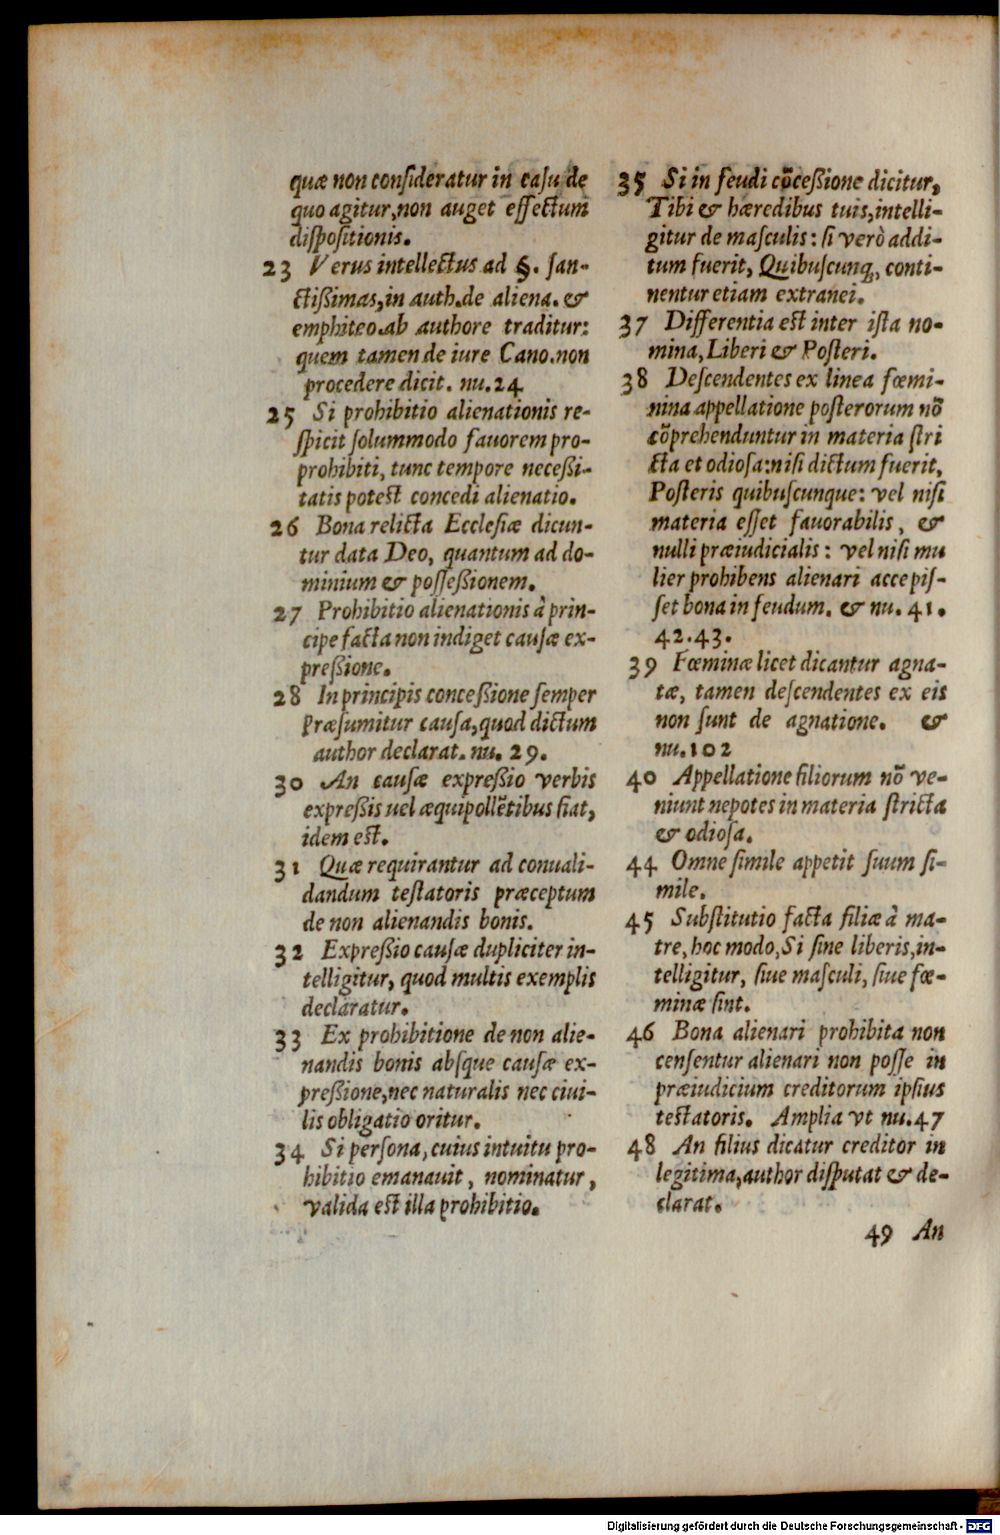 quæ non conſideratur in caſu de
quo agitur, non auget effectum
diſpoſitionis.
23 Verus intellectus ad §. ſan-
ctißimas, in auth. de aliena. &
emphiteo. ab authore traditur:
quem tamen de iure Cano. non
procedere dicit. nu. 24
25 Si prohibitio alienationis re-
ſpicit ſolummodo fauorem pro-
prohibiti, tunc tempore neceßi-
tatis poteſt concedi alienatio.
26 Bona relicta Eccleſiæ dicun-
tur data Deo, quantum ad do-
minium & poſſeßionem.
27 Prohibitio alienationis à prin-
cipe facta non indiget cauſæ ex-
preßione.
28 In principis conceßione ſemper
præſumitur cauſa, quod dictum
author declarat. nu. 29.
30 An cauſæ expreßio verbis
expreßis uel æquipollẽtibus fiat,
idem eſt.
31 Quæ requirantur ad conuali-
dandum teſtatoris præceptum
de non alienandis bonis.
32 Expreßio cauſæ dupliciter in-
telligitur, quod multis exemplis
declaratur.
33 Ex prohibitione de non alie-
nandis bonis abſque cauſæ ex-
preßione, nec naturalis nec ciui-
lis obligatio oritur.
34 Si perſona, cuius intuitu pro-
hibitio emanauit, nominatur,
valida eſt illa prohibitio.
35 Si in feudi cõceßione dicitur,
Tibi & hæredibus tuis, intelli-
gitur de maſculis: ſi verò addi-
tum fuerit, Quibuſcunq, conti-
nentur etiam extranei.
37 Differentia eſt inter iſta no-
mina, Liberi & Poſteri.
38 Deſcendentes ex linea fœmi-
nina appellatione poſterorum nõ
cõprehenduntur in materia ſtri
cta et odioſa: niſi dictum fuerit,
Poſteris quibuſcunque: vel niſi
materia eſſet fauorabilis, &
nulli præiudicialis: vel niſi mu
lier prohibens alienari accepiſ-
ſet bona in feudum. & nu. 41.
42.43.
39 Fœminæ licet dicantur agna-
tæ, tamen deſcendentes ex eis
non ſunt de agnatione. &
nu. 102
40 Appellatione filiorum nõ ve-
niunt nepotes in materia ſtricta
& odioſa.
44 Omne ſimile appetit ſuum ſi-
mile.
45 Subſtitutio facta filiæ à ma-
tre, hoc modo, Si ſine liberis, in-
telligitur, ſiue maſculi, ſiue fœ-
minæ ſint.
46 Bona alienari prohibita non
cenſentur alienari non poſſe in
præiudicium creditorum ipſius
teſtatoris. Amplia vt nu. 47
48 An filius dicatur creditor in
legitima, author diſputat & de-
clarat.
49 An
Digitalisierung gefördert durch die Deutsche Forschungsgemeinschaft - DFG